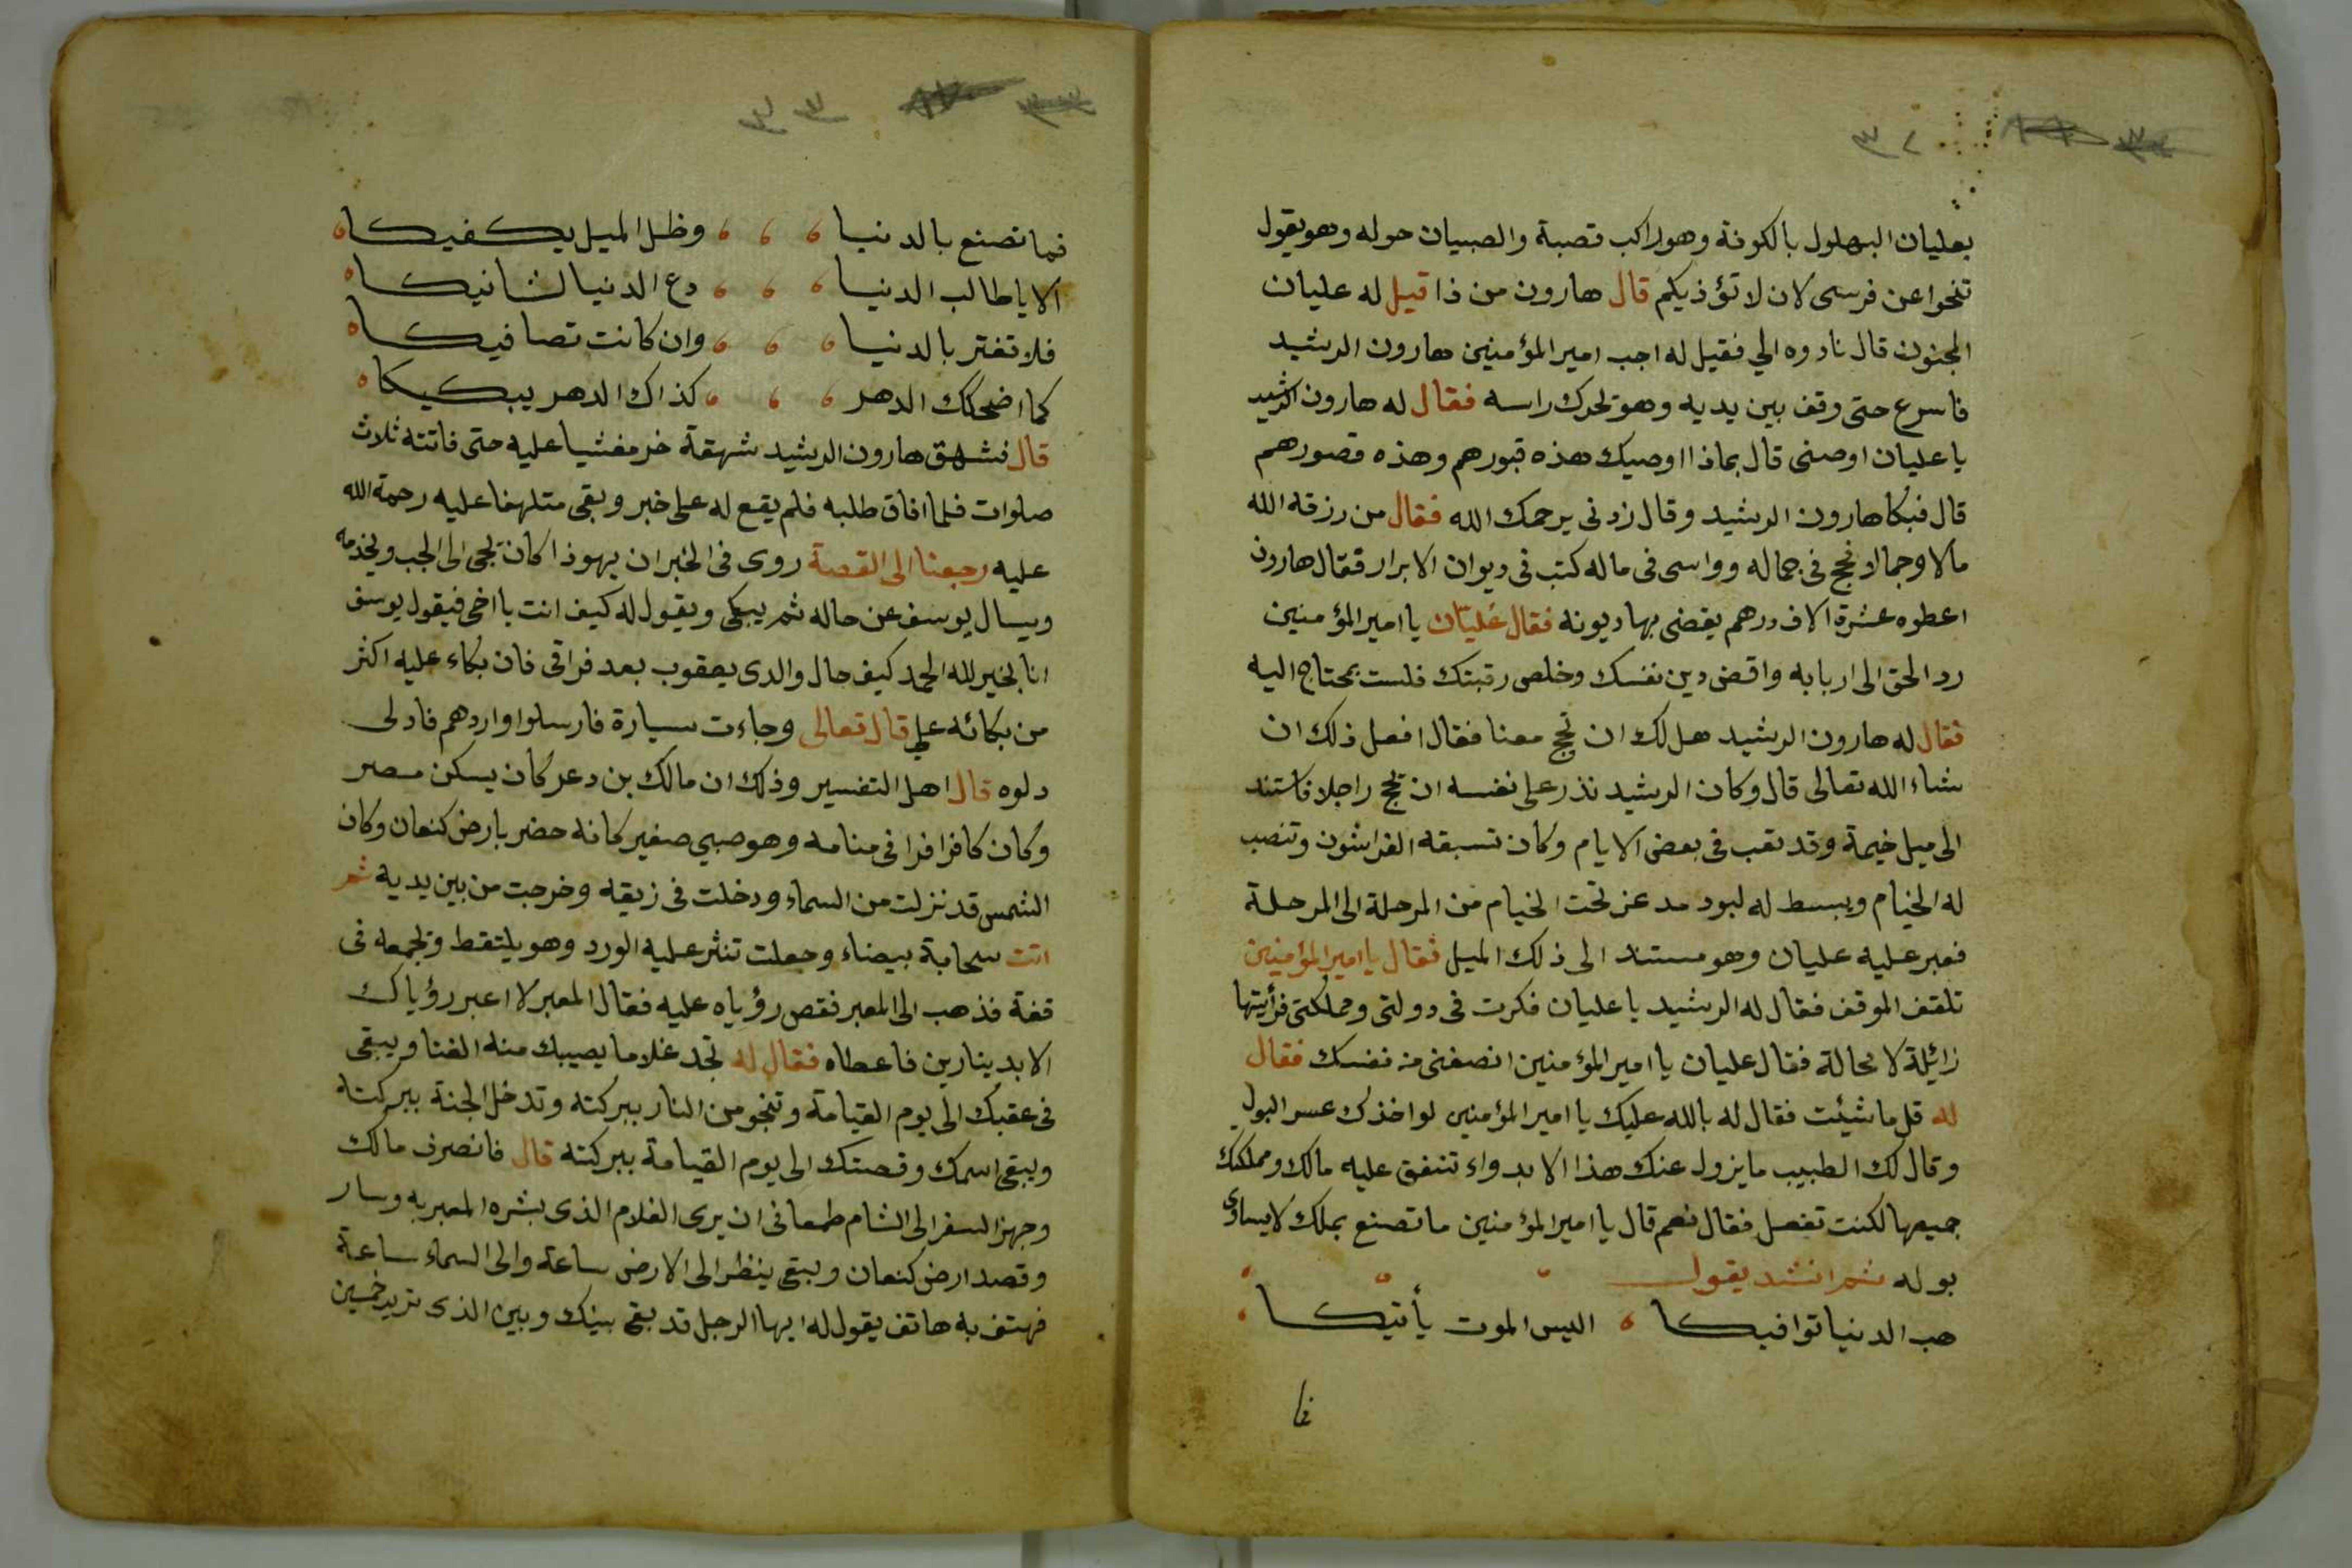 ٣٢
بعليان البهلول بالكوفة وهو راكب قصبة والصبيان حوله وهو يقول
تنحوا عن فرسى لان لا تؤذيكم قال هارون من ذا قيل له عليان
المجنون قال نادوه الي فقيل له اجب امير المؤمنين هارون الرشيد
فاسرع حتى وقف بين يديه وهو يحرك راسه فقال له هارون الرشيد
يا عليان اوصنى قال بماذا اوصيك هذه قبورهم وهذه قصورهم
قال فبكا هارون الرشيد وقال زدنى يرحمك الله فقال من رزقه الله
مالا وجمالا فحج فى جماله وواسى فى ماله كتب فى ديوان الابرار فقال هارون
اعطوه عشرة الاف درهم يقضى بها ديونه فقال عليان يا امير المؤمنين
رد الحق الى اربابه واقض دين نفسك وخلص رقبتك فلست بمحتاج اليه
فقال له هارون الرشيد هل لك ان تحج معنا فقال افعل ذلك ان
شاء الله تعالى قال وكان الرشيد نذر على نفسه ان يحج راجلا فاستند
الى ميل خيمة وقد تعب فى بعض الايام وكان تسبقه الفراشون وتنصب
له الخيام ويبسط له لبود مدعز تحت الخيام من المرحلة الى المرحلة
فعبر عليه عليان وهو مستند الى ذلك الميل فقال يا امير المؤمنين
تلقف الموقف فقال له الرشيد يا عليان فكرت فى دولتى ومملكتى فرأيتها
زائيلة لا محالة فقال عليان يا امير المؤمنين انصفنى من نفسك فقال
له قل ما شيئت فقال له بالله عليك يا امير المؤمنين لو اخذك عسر البول
وقال لك الطبيب ما يزول عنك هذا الا بدواء تنفق عليه مالك ومملكتك
جميعها لكنت تفعل فقال نعم قال يا امير المؤمنين ما تصنع بملك لا يساوى
بوله ثم انشد يقول
هب الدنيا توافيكا اليس الموت يأتيكا
فا
٣٣
فما تصنع بالدنيا وظل الميل يكفيكا
الا يا طالب الدنيا دع الدنيا لشانيكا
فلا تغتر بالدنيا وان كانت تصافيكا
كما اضحكك الدهر كذاك الدهر يبكيكا
قال فشهق هارون الرشيد شهقة خر مغشيا عليه حتى فاتته ثلاث
صلوات فلما افاق طلبه فلم يقع له على خبر وبقى متلهفا عليه رحمة الله
عليه رجعنا الى القصة روى فى الخبر ان يهوذا كان يجى الى الجب ويخدمه
ويسال يوسف عن حاله ثم يبكى ويقول له كيف انت يا اخى فيقول يوسف
انا بخير لله الحمد كيف حال والدى يعقوب بعد فراقى فان بكاء عليه اكثر
من بكائه على قال تعالى وجاءت سيارة فارسلوا واردهم فادلى
دلوه قال اهل التفسير وذلك ان مالك بن دعر كان يسكن مصر
وكان كافرا فرا فى منامه وهو صبي صغير كانه حضر بارض كنعان وكان
الشمس قد نزلت من السماء ودخلت فى زيقه وخرجت من بين يديه ثم
اتت سحابة بيضاء وجعلت تنثر عليه الورد وهو يلتقط ويجمعه فى
قفة فذهب الى المعبر فقص رؤياه عليه فقال المعبر لا اعبر رؤياك
الا بدينارين فاعطاه فقال له تجد غلاما يصيبك منه الغنا ويبقى
فى عقبك الى يوم القيامة وتنجو من النار ببركته وتدخل الجنة ببركته
ويبقى اسمك وقصتك الى يوم القيامة ببركته قال فانصرف مالك
وجهز السفر الى الشام طمعا فى ان يرى الغلام الذى بشره المعبر به وسار
وقصد ارض كنعان وبقى ينظر الى الارض ساعة والى السماء ساعة
فهتف به هاتف يقول له ايها الرجل قد بقى بينك وبين الذى تريد خمسين